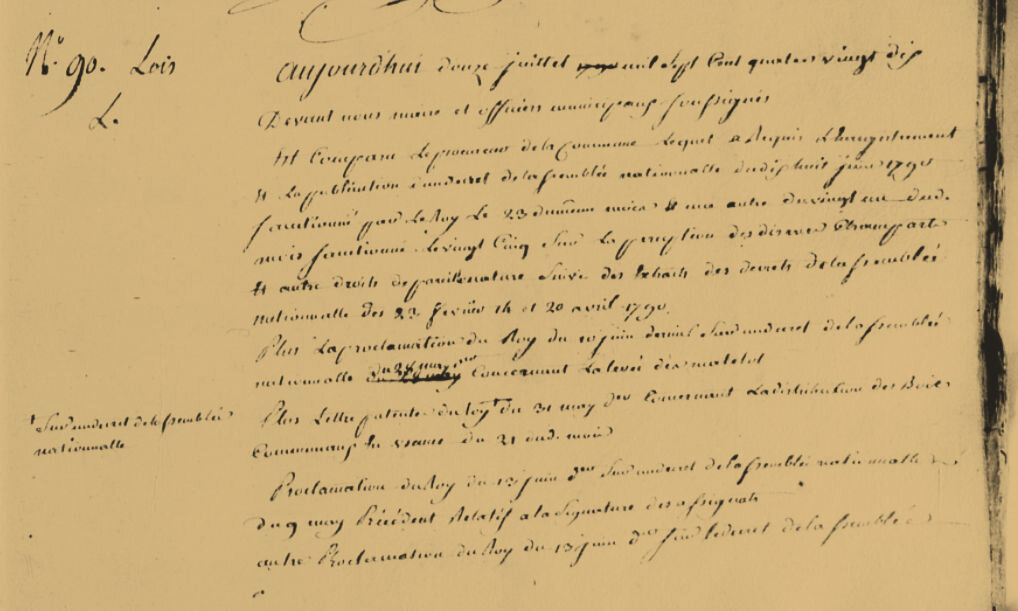 N.° 90. Lois
L.
aujourdhui douze juillet mil sept Cent quatre vingt dix
Devant nous maire et officiers municipaux soussignés
Est Comparu Le procureur de la Commune Lequel a Requis L'Enregistrement
Et La publication d'un decret de lassemblée nationnalle du dix huit juin 1790
sanctionné par Le Roy Le 23 du même mois Et un autre du vingt un dud.
mois sanctionné Le vingt Cinq sur La perception des dixmes Champarts
Et autre droits de pareille nature suivi des Extraits des decrets de lassemblée
nationnalle des 23 fevrier 14 et 20 avril 1790.
Plus La proclamation du Roy du 10 juin dernier sur un decret de lassemblée
nationnalle du 28 may Concernant La levée des matelot
† sur un decret de lassemblée
nationnalle
Plus Lettre patentes du Roy † du 31 may der Concernant La distribution des Bois
Communaux En usance du 21 dud. mois
Proclamation du Roy du 13 juin der sur un decret de lassemblée nationnalle
du 9 may Précédent Relatif a la signature des assignats
autre Proclamation du Roy du 13 juin der sur le decret de lassemblée